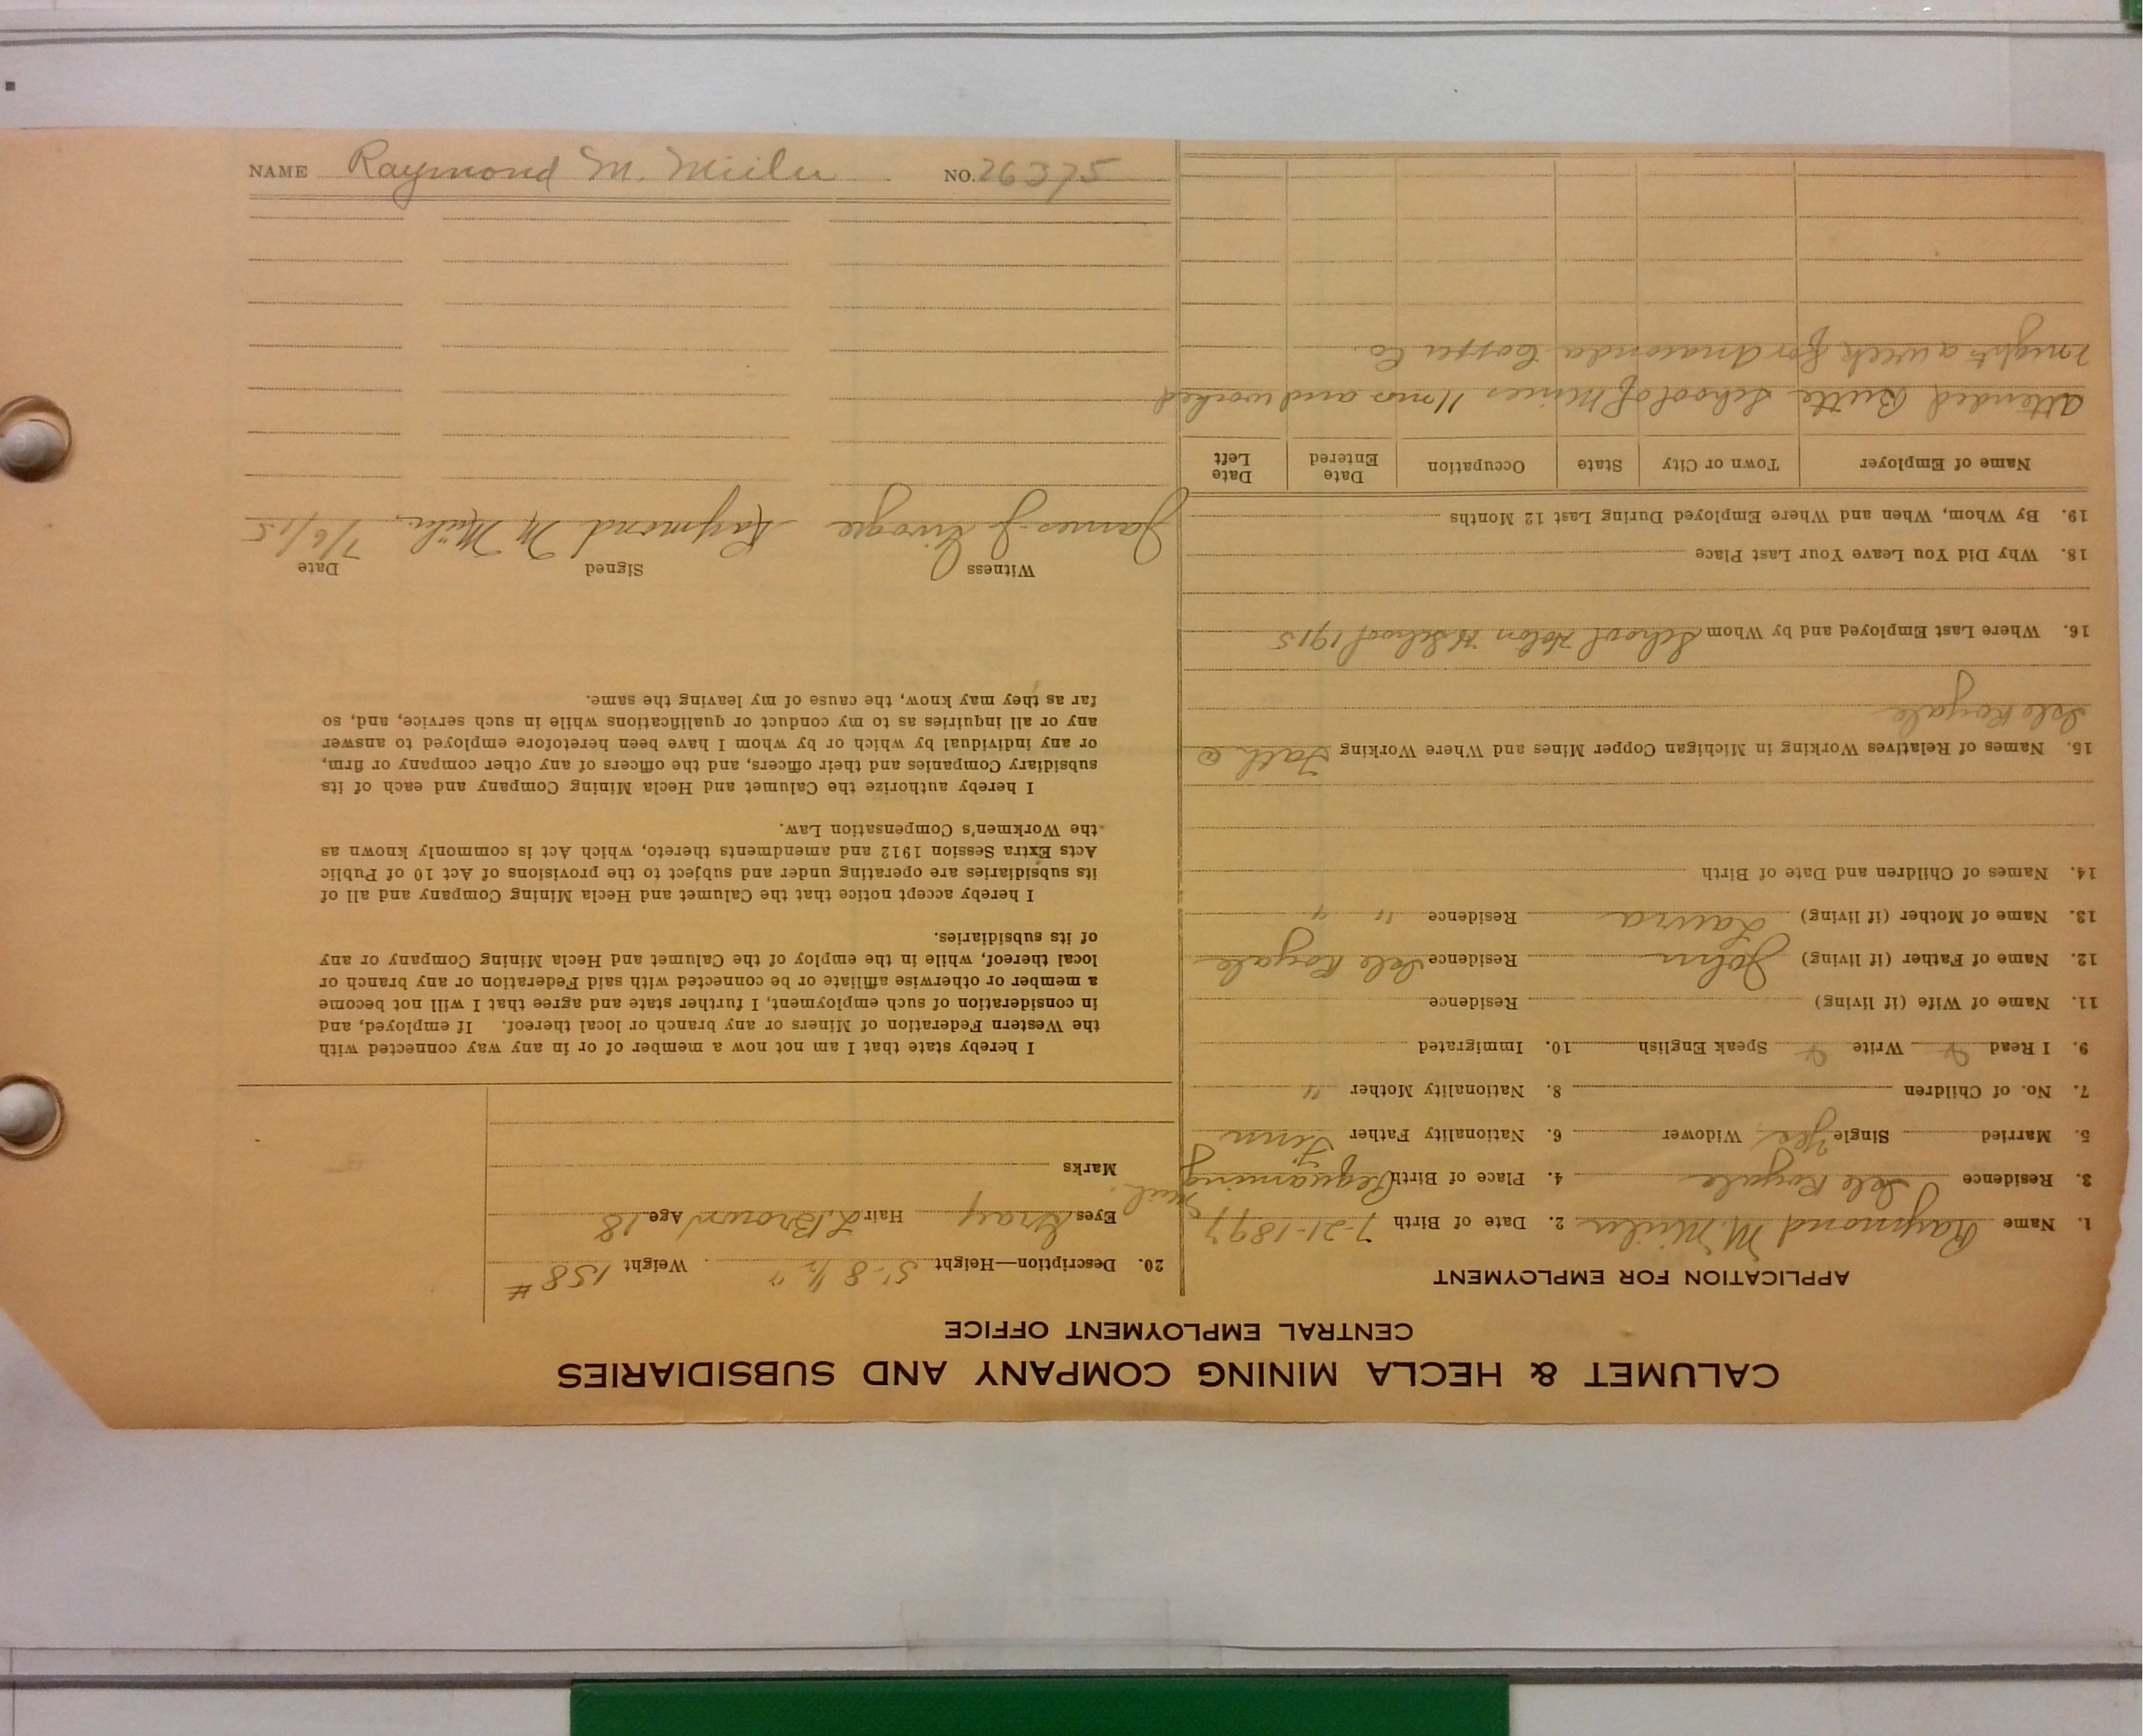 CALUMET & HECLA MINING COMPANY AND SUBSIDIARIES
CENTRAL EMPLOYMENT OFFICE
APPLICATION FOR EMPLOYMENT
1. Name Raymond M. Miilu 2. Date of Birth 7-21-1897
3. Residence Isle Royale 4. Place of Birth Pequaming Mich.
5. Married Single Yes Widower 6. Nationality Father Finn
7. No. of Children 8. Nationality Mother "
9. I Read Write Speak English 10. Immigrated
11. Name of Wife (if living) Residence
12. Name of Father (if living) John Residence Isle Royale
13. Name of Mother (if living) Laura Residence " "
14. Names of Children and Date of Birth
15. Names of Relatives Working in Michigan Copper Mines and Where Working Fath @
Isle Royale
16. Where Last Employed and by Whom School Hotn H School 1915
18. Why Did You Leave Your Last Place
19. By Whom, When and Where Employed During Last 12 Months
Name of Employer Town or City State Occupation Date Entered Date Left
Attended Butte School of Mines 11 mos and worked
7 nights a week for Anaconda Copper Co.
20. Description—Height 5'-8 1/2" Weight 158#
Eyes Gray Hair L. Brown Age 18
Marks
I hereby state that I am not now a member of or in any way connected with
the Western Federation of Miners or any branch or local thereof. If employed, and
in consideration of such employment, I further state and agree that I will not become
a member or otherwise affiliate or be connected with said Federation or any branch or
local thereof, while in the employ of the Calumet and Hecla Mining Company or any
of its subsidiaries.
I hereby accept notice that the Calumet and Hecla Mining Company and all of
its subsidiaries are operating under and subject to the provisions of Act 10 of Public
Acts Extra Session 1912 and amendments thereto, which Act is commonly known as
the Workmen's Compensation Law.
I hereby authorize the Calumet and Hecla Mining Company and each of its
subsidiary Companies and their officers, and the officers of any other company or firm,
or any individual by which or by whom I have been heretofore employed to answer
any or all inquiries as to my conduct or qualifications while in such service, and, so
far as they may know, the cause of my leaving the same.
Witness Signed Date
James J. Raymond M Miilu. 7/6/15
NAME Raymond M. Miilu NO. 26375